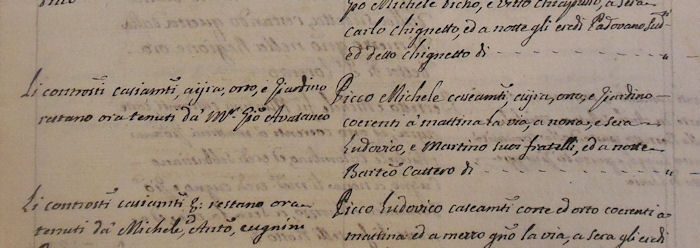 po Michele Picho, e Vitto Chiappino, a sera
Carlo Chignetto, ed a notte gli eredi Padovano Lud
ed detto Chignetto di
Li controsti casiamti, aijra, orto, e Giardino
restano ora tenuti da Mr. Gio Avataneo
Picco Michele caseamti, aijra, orto, e Giardino
coerenti a mattina la via, a nona, e sera
Ludovico, e Martino suoi fratelli, ed a notte
Barteo Cattero di
Li controsti casiamti &: restano ora
tenuti da Michele, Anto, e ugnini
Picco Ludovico caseamti corte ed orto coerenti a
mattina ed a mezzo gno la via, a sera gli eredi